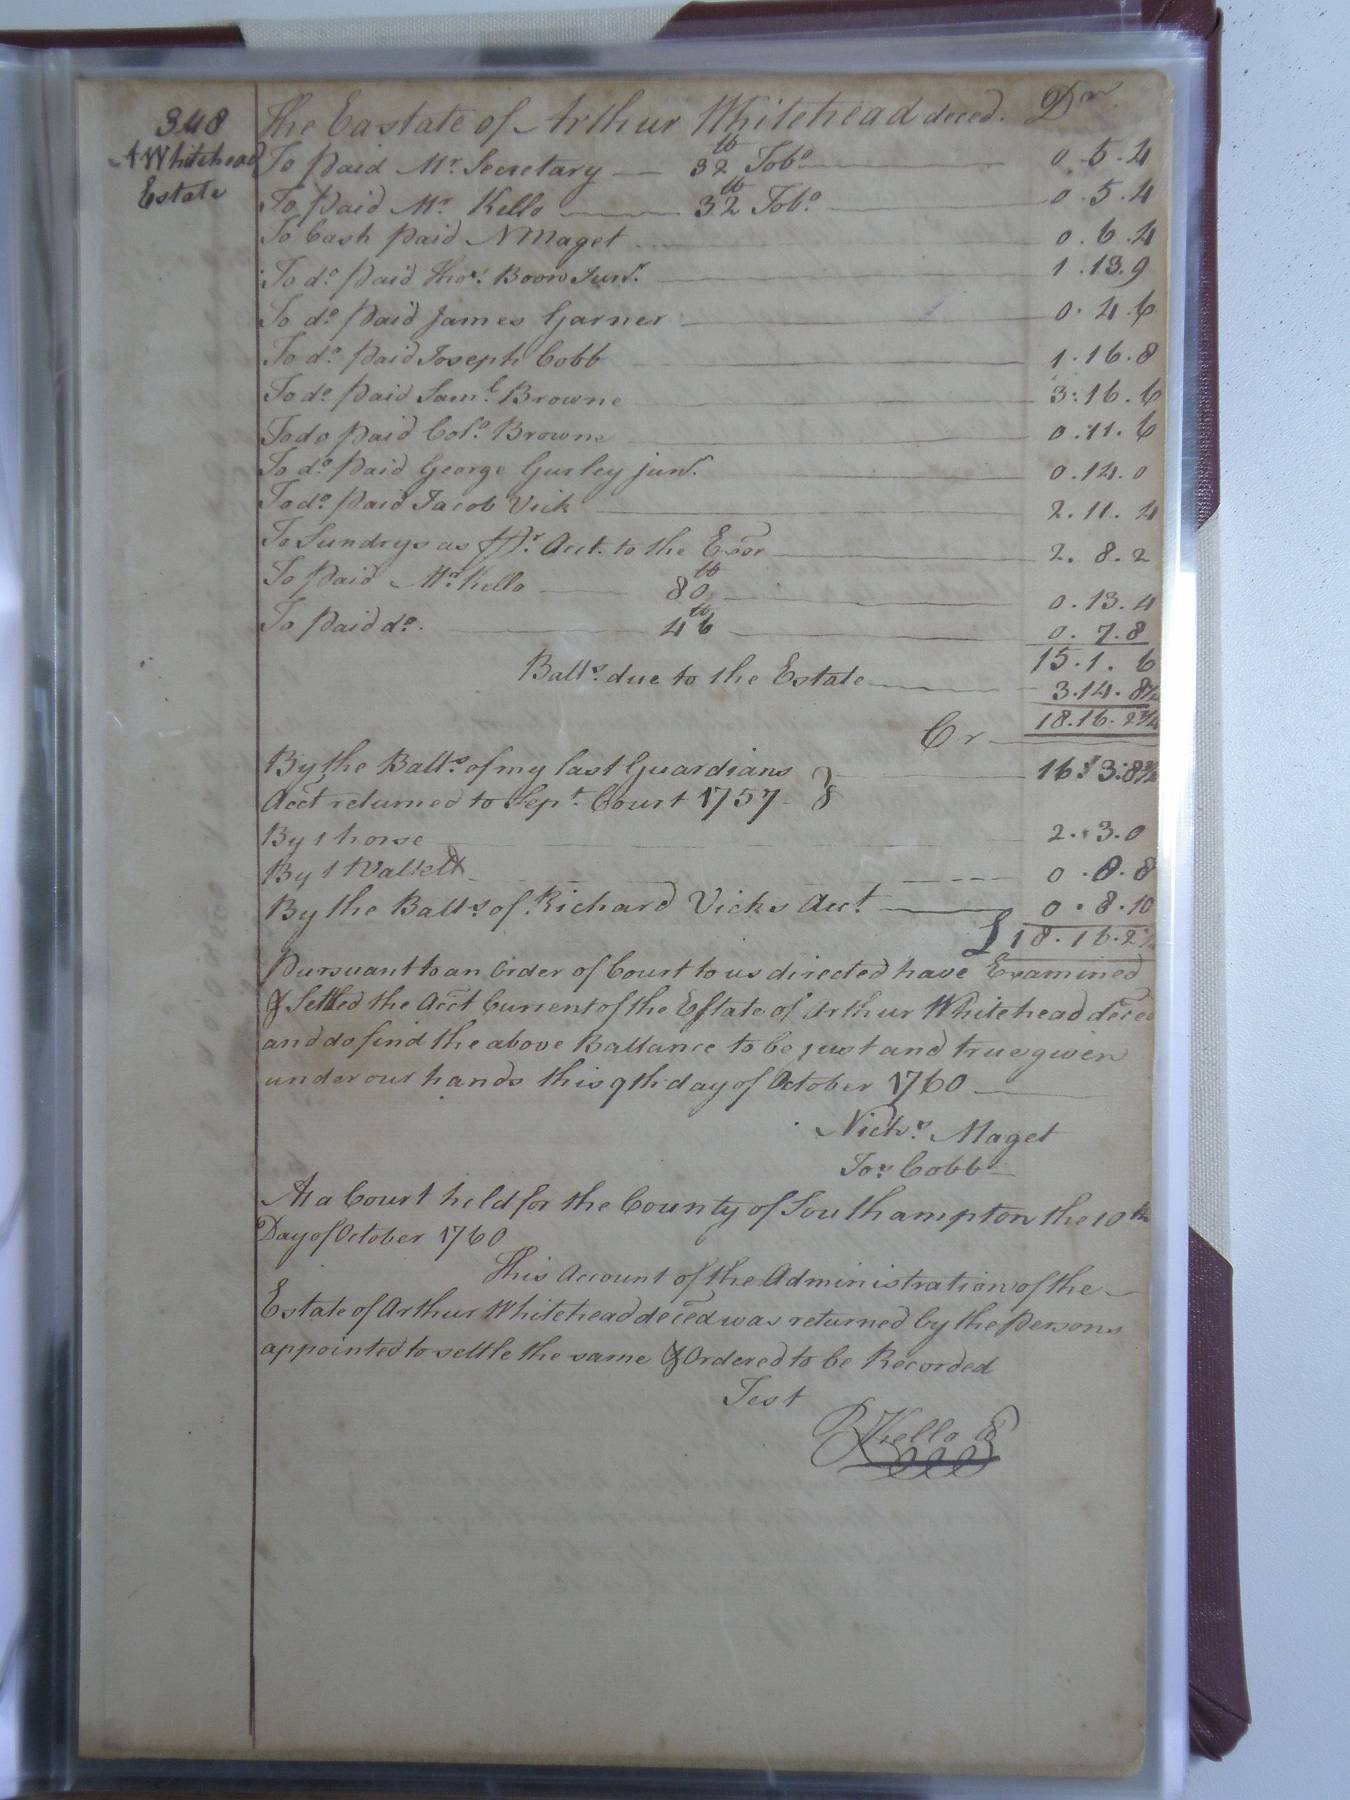 348
A Whitehead
Estate
The Eastate of Arthur Whitehead deced. Dr.
To paid Mr. Secretary 32 lb Tobo. 0.5.4
To paid Mr. Kello 32 lb Tobo. 0.5.4
To Cash paid N Maget 0.6.4
To do. paid Thos. Boon Junr. 1.13.9
To do. paid James Garner 0.4.6
To do. paid Joseph Cobb 1.16.8
To do. paid Saml. Browne 3.16.6
To do paid Colo. Browne 0.11.6
To do. paid George Gurley junr. 0.14.0
To do. paid Jacob Vick 2.11.4
To Sundrys as Pr. Acct. to the Exor 2.8.2
To paid Mr. Kello 80 lb 0.13.4
To paid do. 46 lb 0.7.8
15.1.6
Balls. due to the Estate 3.14.8¾
18.16.2¾
Cr
By the Balls. of my last Guardians 16.3.8¾
Acct returned to Sept. Court 1757
By 1 horse 2.3.0
By 1 0.0.8
By the Balls. of Richard Vicks Acct. 0.8.10
£18.16.2¾
Pursuant to an Order of Court to us directed have Examined
& Settled the Acct Current of the Estate of Arthur Whitehead deced
and do find the above Ballance to be just and true given
under our hands this 9th day of October 1760
Nichs. Maget
Jos. Cobb
At a Court held for the County of Southampton the 10th
Day of October 1760
This Account of the Administration of the
Estate of Arthur Whitehead deced was returned by the Persons
appointed to settle the same & Ordered to be Recorded
Test
R Kello